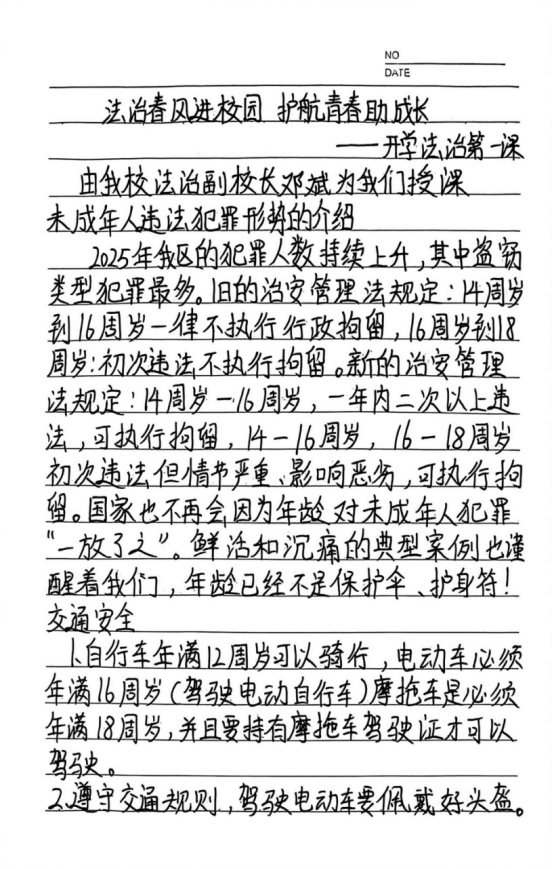 NO
DATE
法治春风进校园 护航青春助成长
——开学法治第一课
由我校法治副校长邓斌为我们授课
未成年人违法犯罪形势的介绍
2025年我区的犯罪人数持续上升,其中盗窃
类型犯罪最多。旧的治安管理法规定:14周岁
到16周岁一律不执行行政拘留,16周岁到18
周岁:初次违法不执行拘留。新的治安管理
法规定:14周岁一16周岁,一年内二次以上违
法,可执行拘留,14-16周岁,16-18周岁
初次违法但情节严重、影响恶劣,可执行拘
留。国家也不再会因为年龄对未成年人犯罪
“一放了之”。鲜活和沉痛的典型案例也谨
醒着我们,年龄已经不是保护伞、护身符!
交通安全
1.自行车年满12周岁可以骑行,电动车必须
年满16周岁(驾驶电动自行车)摩拖车是必须
年满18周岁,并且要持有摩拖车驾驶证才可以
驾驶。
2.遵守交通规则,驾驶电动车要佩戴好头盔。